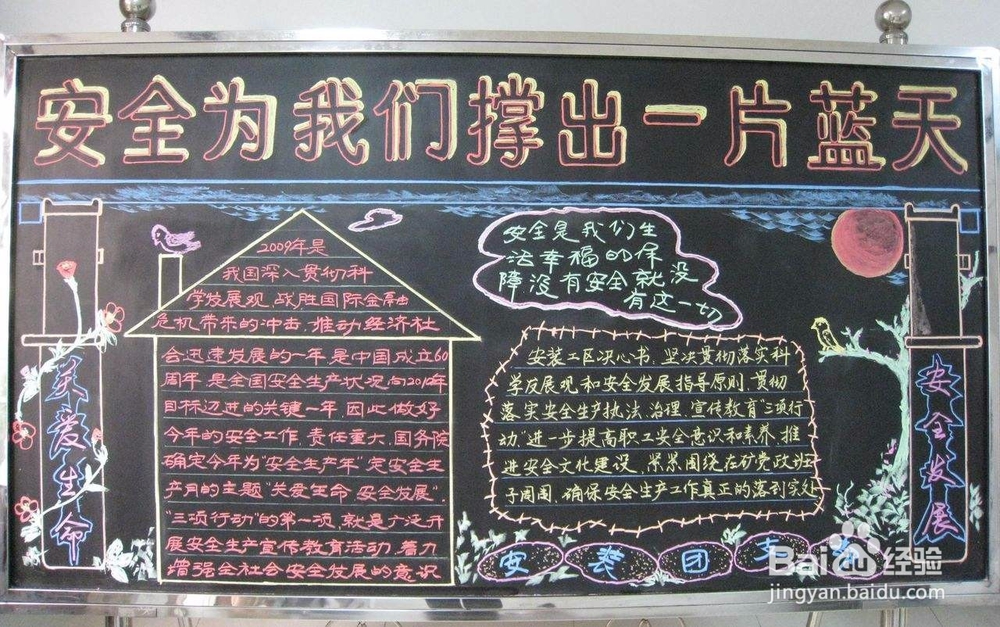 安全为我们撑出一片蓝天
2009年是
我国深入贯彻科
学发展观 战胜国际金融
危机带来的冲击, 推动经济社
会迅速发展的一年 是中国成立60
周年 是全国安全生产状况向2010年
目标迈进的关键一年 因此做好
今年的安全工作, 责任重大, 国务院
确定今年为“安全生产年” 定安全生
产月的主题“关爱生命 安全发展”.
“三项行动”的第一项, 就是广泛开
展安全生产宣传教育活动, 着力
增强全社会安全发展的意识
安全是我们生
活幸福的保
障没有安全就没
有这一切
安装工区决心书. 坚决贯彻落实科
学发展观和安全发展指导原则, 贯彻
落实安全生产执法、治理、宣传教育“三项行
动”进一步提高职工安全意识和素养 推
进安全文化建设, 紧紧围绕在矿党政班
子周围, 确保安全生产工作真正的落到实处
关爱生命
安全发展
安装团支
Baidu经验
jingyan.baidu.com